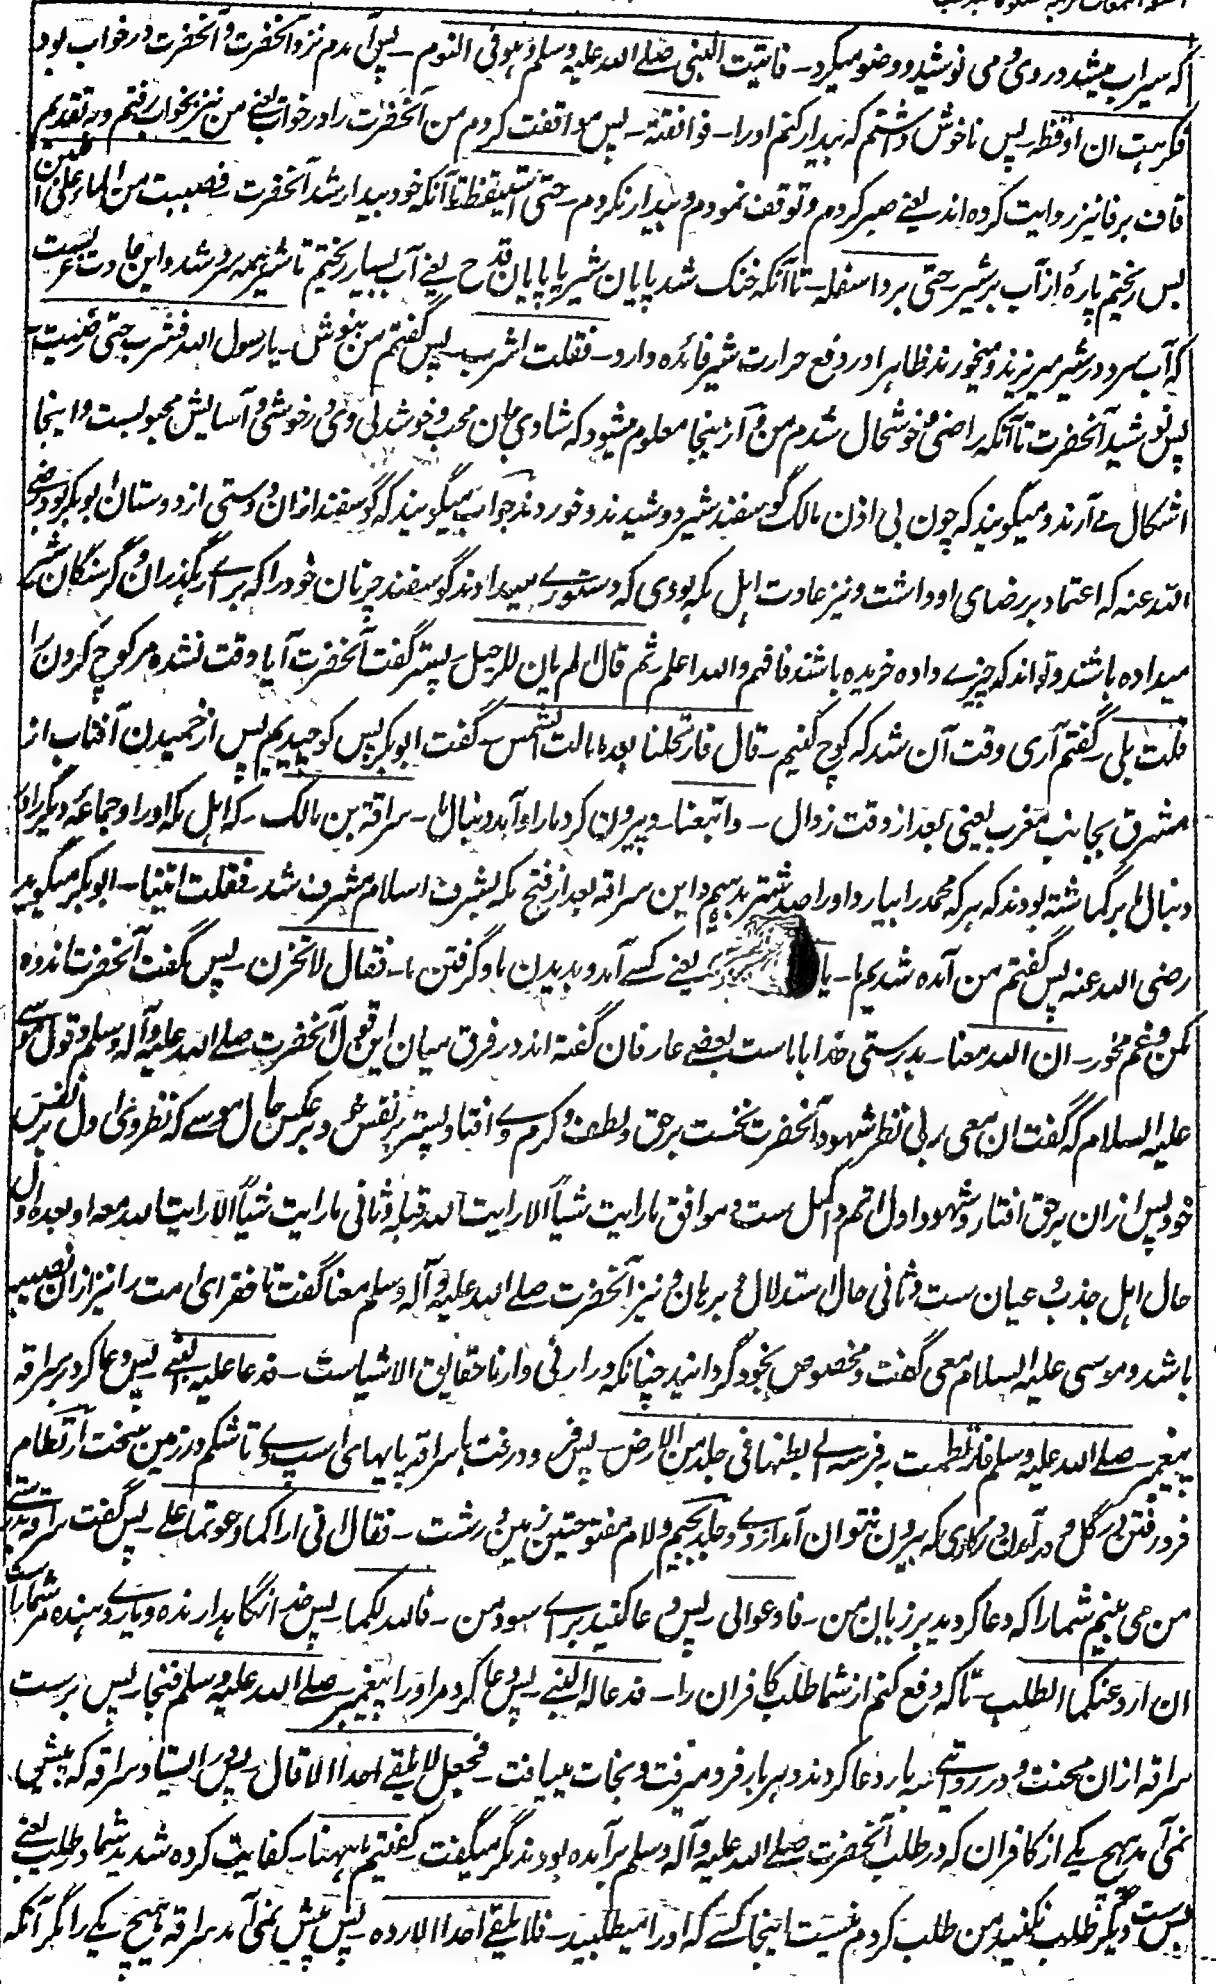 که سیراب میشد در وی و می نوشید و وضو میکرد - فاتیت النبی صلے الله علیه وسلم وهو فی النوم - پس آمدم نزد آنحضرت و آنحضرت در خواب بود
فکرهت ان اوقظه پس ناخوش داشتم که بیدار کنم او را - فوافقته - پس موافقت کردم من آنحضرت را در خواب یعنے من نیز بخواب رفتم و به تقدیم
قاف بر فا نیز روایت کرده اند یعنے صبر کردم و توقف نمودم و بیدار نکردم - حتی استیقظ تا آنکه خود بیدار شد آنحضرت فصببت من الماء علی اللبن
پس ریختم پارهٔ از آب بر شیر - حتی برد اسفله - تا آنکه خنک شد پایان شیر یا پایان قدح یعنے آب بسیار ریختم تا شیر همه سرد شد و این عادت عرب است
که آب سرد در شیر میریزند و میخورند ظاهرا در دفع حرارت شیر فائده دارد - فقلت اشرب - پس گفتم من بنوش - یا رسول الله فشرب حتی رضیت
پس نوشید آنحضرت تا آنکه راضی و خوشحال شدم من و از ینجا معلوم میشود که شادی جان محب و خوشدلی وی در خوشی و آسایش محبوبست و اینجا
اشکال مے آرند و میگویند که چون بی اذن مالک گوسفند شیر دوشیدند و خوردند جواب میگویند که گوسفند از ان دوستی از دوستان ابوبکر بود رضی
الله عنه که اعتماد بر رضای او داشت و نیز عادت اهل مکه بودی که دستورے میدادند گوسفند چرانان خود را که براے رهگذران و گرسنگان شیر
میداده باشند و تواند که چیزے داده خریده باشند فافهم والله اعلم ثم قال الم یان للرحیل - پستر گفت آنحضرت آیا وقت نشده مر کوچ کردن را
قلت بلی - گفتم آری وقت آن شد که کوچ کنیم - قال فارتحلنا بعد ما مالت الشمس - گفت ابوبکر پس کوچیدیم پس از خمیدن آفتاب از
مشرق بجانب مغرب یعنی بعد از وقت زوال - واتبعنا - و پیروی کرد ما را و آمد دنبال ما - سراقة بن مالک - که اهل مکه او را و جماعهٔ دیگر را در
دنبال ما برگماشته بودند که هر که محمد را بیارد او را صد شتر بدهیم و این سراقه بعد از فتح مکه بشرف اسلام مشرف شد - فقلت اتینا - ابوبکر میگوید
رضی الله عنه پس گفتم من آمده شدیم ما - یا یعنے کسے آمد و بدیدن ما و گرفتن ما - فقال لا تحزن - پس گفت آنحضرت اندوه
مکن و غم مخور - ان الله معنا - بدرستی خدا با ما است بعضے عارفان گفته اند در فرق میان این قول آنحضرت صلے الله علیه و آله وسلم و قول موسی
علیه السلام که گفت ان معی ربی نظر شهود آنحضرت نخست بر حق و لطف و کرم وے افتاد و پستر بر نفس خود بر عکس حال موسے که نظر وی اول بر نفس
خود پس از ان بر حق افتاد و شهود اول اتم و اکمل ست و موافق ما رایت شیأ الا رایت الله قبله و ثانی ما رایت شیأ الا رایت الله معه او بعده و اول
حال اهل جذب و عیان ست و ثانی حال استدلال و برهان و نیز آنحضرت صلے الله علیه و آله وسلم معنا گفت تا فقرای امت را نیز از ان نصیب
باشد و موسی علیه السلام معی گفت و مخصوص بخود گردانید چنانکه در ارنی و ارنا حقایق الاشیاست - فدعا علیه النبی پس دعا کرد بر سراقه
پیغمبر - صلے الله علیه وسلم فارتطمت به فرسه الی بطنها فی جلد من الارض - پس فرو درفت با سراقه پایهای اسپ وے تا شکم در زمین سخت ارتطام
فرو رفتن در گل و در آمدن در کاری که بیرون نتوان آمد از وے و جلد بجیم و لام مفتوحتین زمین درشت - فقال انی اراکما دعوتما علی - پس گفت سراقه بدرستی
من می بینم شما را که دعا کردید بر زیان من - فادعوا لی - پس دعا کنید براے سود من - فالله لکما - پس خدا نگاهدارنده و یارے دهنده مر شما راست
ان ارد عنکما الطلب - تا که دفع کنم از شما طلب کافران را - فدعا له النبی - پس دعا کرد مر او را پیغمبر - صلے الله علیه وسلم فنجا - پس برست
سراقه از ان محنت و در روایتے سه بار دعا کردند و هر بار فرو میرفت و نجات مییافت - فجعل لا یلقے احدا الا قال - پس ایستاد سراقه که پیش
نمی آمد هیچ یکے از کافران که در طلب آنحضرت صلے الله علیه و آله وسلم برآمده بودند مگر میگفت - کفیتم ما ههنا - کفایت کرده شدید شما در طلب یعنے
بس ست دیگر طلب نکنید من طلب کردم نیست اینجا کسے که او را میطلبید - فلا یلقے احدا الا رده - پس پیش نمی آمد سراقه هیچ یکے را مگر آنکه